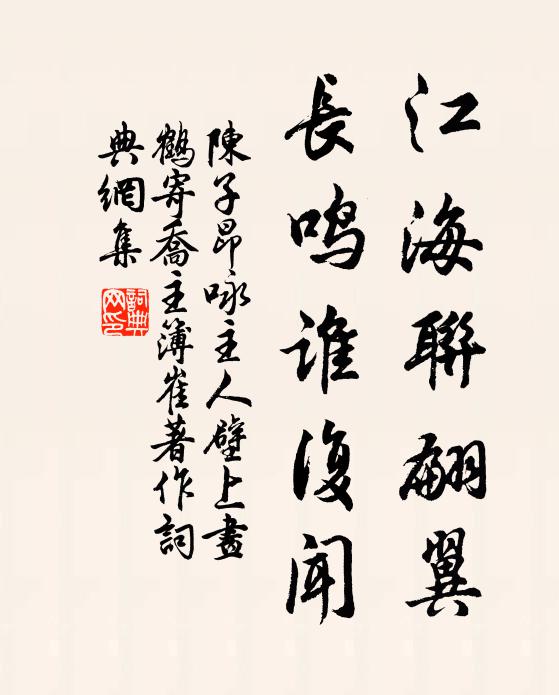 江海聯翩翼
長鳴誰復聞
陳子昂咏主人壁上畫
鶴寄喬主簿崔著作詞
典網集
詞典
网印